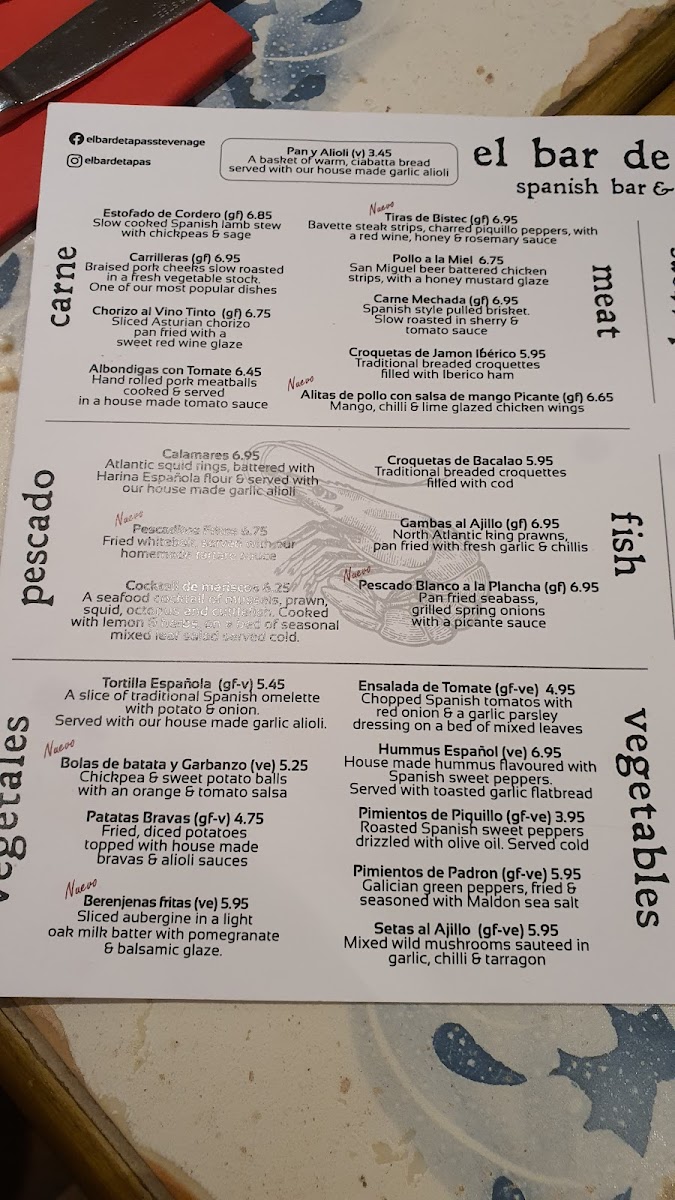 elbardetapasstevenage
elbardetapas
Pan y Alioli (v) 3.45
A basket of warm, ciabatta bread
served with our house made garlic alioli
el bar de
spanish bar &
carne
Estofado de Cordero (gf) 6.85
Slow cooked Spanish lamb stew
with chickpeas & sage
Carrilleras (gf) 6.95
Braised pork cheeks slow roasted
in a fresh vegetable stock.
One of our most popular dishes
Chorizo al Vino Tinto (gf) 6.75
Sliced Asturian chorizo
pan fried with a
sweet red wine glaze
Albondigas con Tomate 6.45
Hand rolled pork meatballs
cooked & served
in a house made tomato sauce
Nuevo
Tiras de Bistec (gf) 6.95
Bavette steak strips, charred piquillo peppers, with
a red wine, honey & rosemary sauce
Pollo a la Miel 6.75
San Miguel beer battered chicken
strips, with a honey mustard glaze
Carne Mechada (gf) 6.95
Spanish style pulled brisket.
Slow roasted in sherry &
tomato sauce
Croquetas de Jamon Ibérico 5.95
Traditional breaded croquettes
filled with Iberico ham
Nuevo
Alitas de pollo con salsa de mango Picante (gf) 6.65
Mango, chilli & lime glazed chicken wings
meat
pescado
Calamares 6.95
Atlantic squid rings, battered with
Harina Española flour & served with
our house made garlic alioli
Nuevo
6.75
Fried whitebait, served with our
homemade tartare sauce
Cocktail de mariscos 6.25
A seafood cocktail of mussels, prawn,
squid, octopus and cuttlefish. Cooked
with lemon & herbs, on a bed of seasonal
mixed leaf salad served cold.
Croquetas de Bacalao 5.95
Traditional breaded croquettes
filled with cod
Gambas al Ajillo (gf) 6.95
North Atlantic king prawns,
pan fried with fresh garlic & chillis
Nuevo
Pescado Blanco a la Plancha (gf) 6.95
Pan fried seabass,
grilled spring onions
with a picante sauce
fish
vegetales
Tortilla Española (gf-v) 5.45
A slice of traditional Spanish omelette
with potato & onion.
Served with our house made garlic alioli.
Nuevo
Bolas de batata y Garbanzo (ve) 5.25
Chickpea & sweet potato balls
with an orange & tomato salsa
Patatas Bravas (gf-v) 4.75
Fried, diced potatoes
topped with house made
bravas & alioli sauces
Nuevo
Berenjenas fritas (ve) 5.95
Sliced aubergine in a light
oak milk batter with pomegranate
& balsamic glaze.
Ensalada de Tomate (gf-ve) 4.95
Chopped Spanish tomatos with
red onion & a garlic parsley
dressing on a bed of mixed leaves
Hummus Español (ve) 6.95
House made hummus flavoured with
Spanish sweet peppers.
Served with toasted garlic flatbread
Pimientos de Piquillo (gf-ve) 3.95
Roasted Spanish sweet peppers
drizzled with olive oil. Served cold
Pimientos de Padron (gf-ve) 5.95
Galician green peppers, fried &
seasoned with Maldon sea salt
Setas al Ajillo (gf-ve) 5.95
Mixed wild mushrooms sauteed in
garlic, chilli & tarragon
vegetables